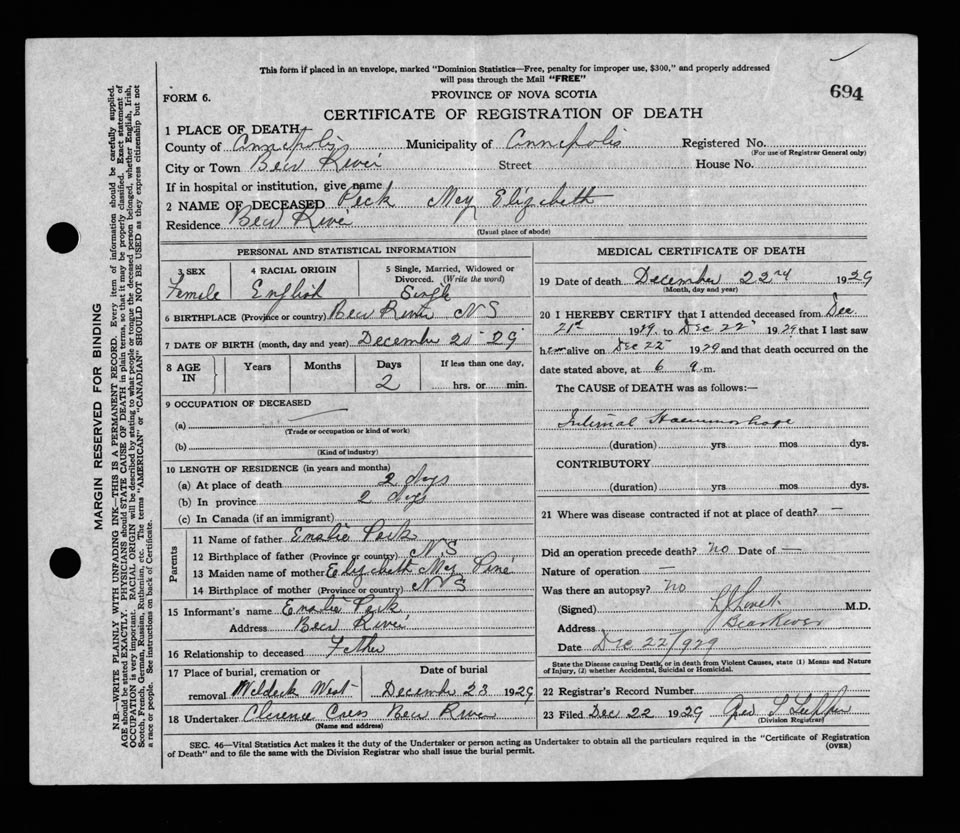 This form if placed in an envelope, marked "Dominion Statistics—Free, penalty for improper use, $300," and properly addressed
will pass through the Mail "FREE"
694
FORM 6.
PROVINCE OF NOVA SCOTIA
CERTIFICATE OF REGISTRATION OF DEATH
1 PLACE OF DEATH
County of Annapolis Municipality of Annapolis Registered No.
(For use of Registrar General only)
City or Town Bear River Street House No.
If in hospital or institution, give name
2 NAME OF DECEASED Peck May Elizabeth
Residence Bear River
(Usual place of abode)
PERSONAL AND STATISTICAL INFORMATION
3 SEX
Female
4 RACIAL ORIGIN
English
5 Single, Married, Widowed or
Divorced. (Write the word)
Single
6 BIRTHPLACE (Province or country) Bear River NS
7 DATE OF BIRTH (month, day and year) December 20 29
8 AGE
IN
Years
Months
Days
2
If less than one day,
hrs. or min.
9 OCCUPATION OF DECEASED
(a)
(Trade or occupation or kind of work)
(b)
(Kind of industry)
10 LENGTH OF RESIDENCE (in years and months)
(a) At place of death 2 days
(b) In province 2 days
(c) In Canada (if an immigrant)
Parents
11 Name of father Peck
12 Birthplace of father (Province or country) N.S
13 Maiden name of mother Elizabeth May
14 Birthplace of mother (Province or country) NS
15 Informant's name Peck
Address Bear River
16 Relationship to deceased Father
17 Place of burial, cremation or
removal West
Date of burial
December 23 1929
18 Undertaker Clarence Bear River
(Name and address)
MEDICAL CERTIFICATE OF DEATH
19 Date of death December 22nd 1929
(Month, day and year)
20 I HEREBY CERTIFY that I attended deceased from Dec.
21st 1929 to Dec 22 1929 that I last saw
her alive on Dec 22 1929 and that death occurred on the
date stated above, at 6 a.m.
The CAUSE of DEATH was as follows:—
Internal Haemorrhage
(duration) yrs. mos. dys.
CONTRIBUTORY
(duration) yrs. mos. dys.
21 Where was disease contracted if not at place of death? —
Did an operation precede death? no Date of —
Nature of operation —
Was there an autopsy? No
(Signed) M.D.
Address Bear River
Date Dec 22/1929
State the Disease causing Death, or in death from Violent Causes, state (1) Means and Nature
of Injury, (2) whether Accidental, Suicidal or Homicidal.
22 Registrar's Record Number
23 Filed Dec 22 1929
(Division Registrar)
SEC. 46—Vital Statistics Act makes it the duty of the Undertaker or person acting as Undertaker to obtain all the particulars required in the "Certificate of Registration
of Death" and to file the same with the Division Registrar who shall issue the burial permit.
(OVER)
MARGIN RESERVED FOR BINDING
N.B.—WRITE PLAINLY WITH UNFADING INK—THIS IS A PERMANENT RECORD. Every item of information should be carefully supplied.
AGE should be stated EXACTLY. PHYSICIANS should STATE CAUSE OF DEATH in plain terms, so that it may be properly classified. Exact statement of
OCCUPATION is very important. RACIAL ORIGIN will be described by stating to what people or tongue the deceased person belonged, whether English, Irish,
Scotch, French, German, Russian, Ruthenian, etc. The terms "AMERICAN" or "CANADIAN" SHOULD NOT BE USED as they express citizenship but not
a race or people. See instructions on back of Certificate.